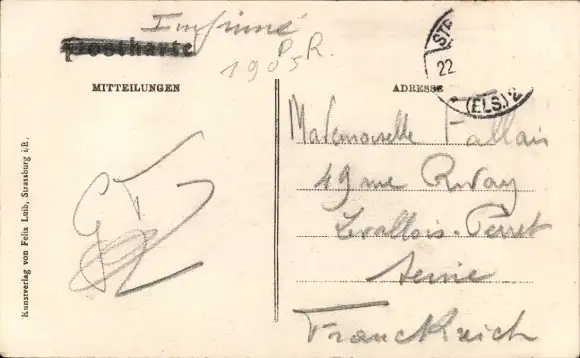 Imprimé
Postkarte
P. R.
1905
MITTEILUNGEN
ADRESSE
STR
22
(ELS.) 2
Mademoiselle Fallais
49 rue Rivay
Levallois-Perret
Seine
Franckreich
Kunstverlag von Felix Luib, Strassburg i.E.